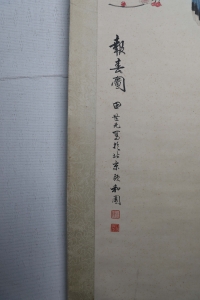 報春圖
田世光寫於北京頤和園